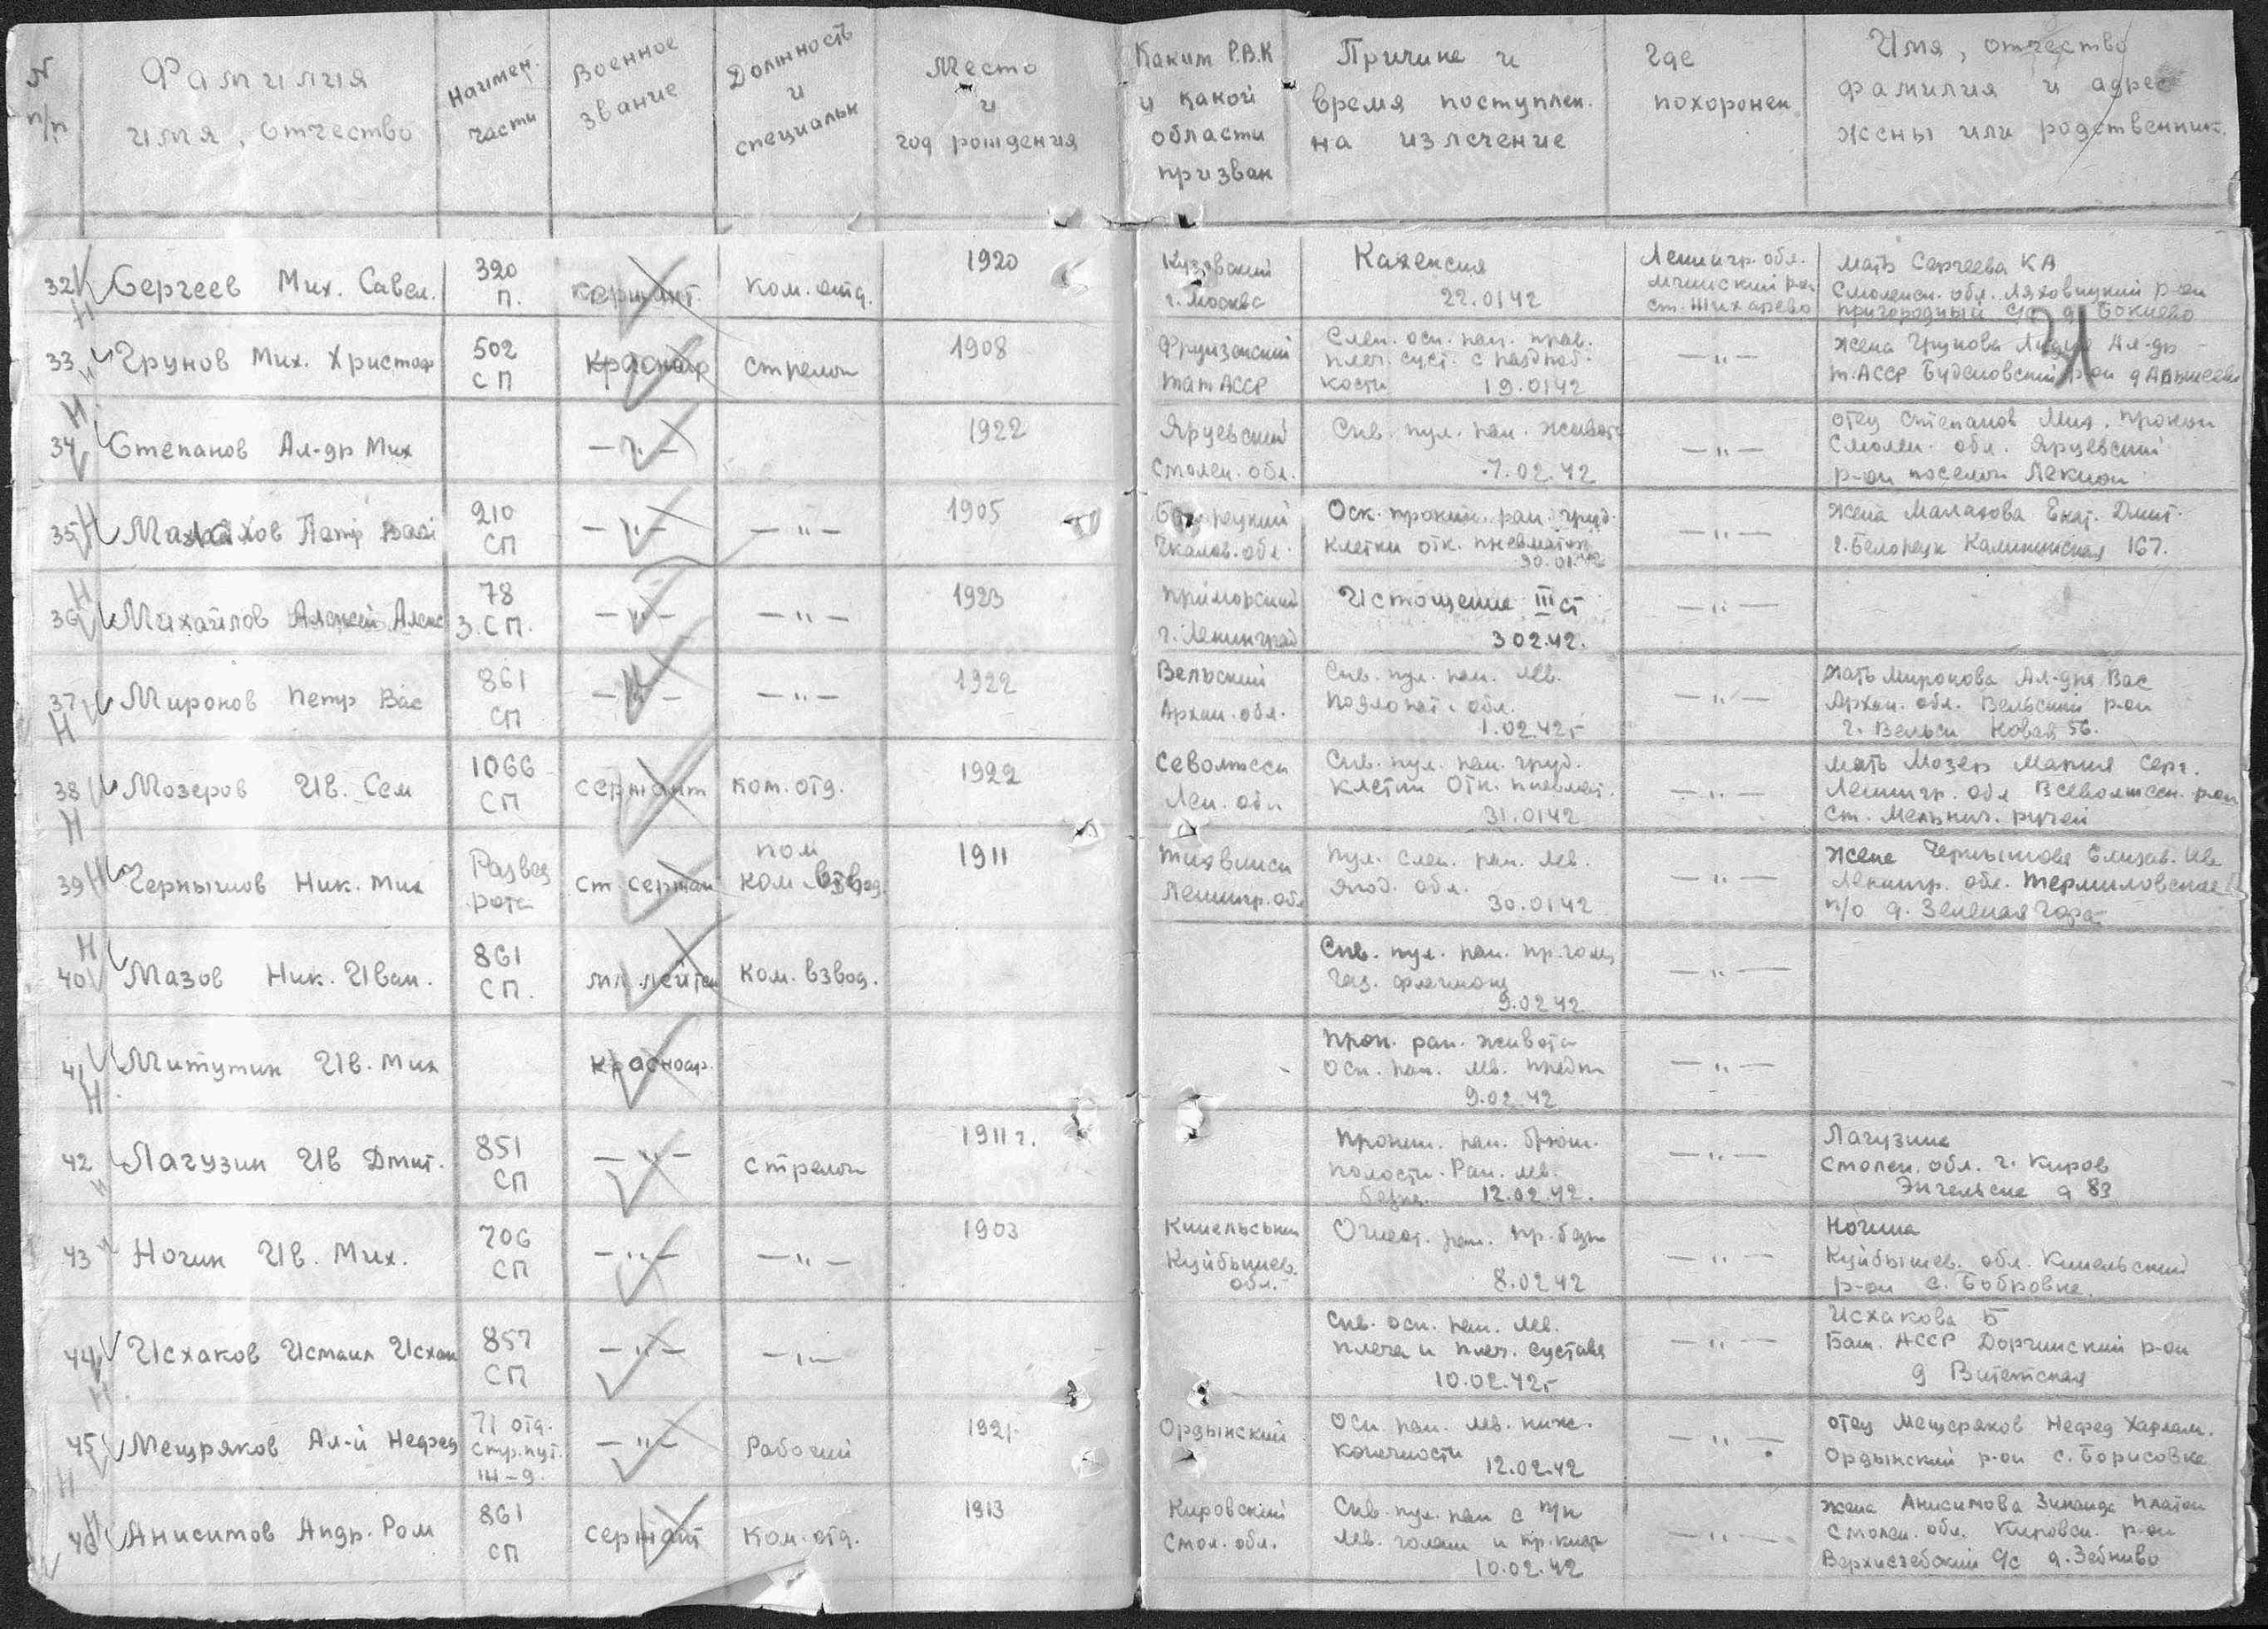 N п/п
Фамилия имя, отчество
Наимен. части
Военное звание
Должность и специальн
Место и год рождения
Каким Р.В.К и какой области призван
Причина и время поступлен. на излечение
Где похоронен
Имя, отчество фамилия и адрес жены или родственник.
32 Сергеев Мих. Савел.
320 П.
сержант.
ком. отд.
1920
г. Москва
Кахексия
22.0142
Ленингр. обл.
ст. Жихарево
мать Сергеева КА
Смоленск. обл. Ляховицкий р-он
пригородный с/с д Бокиево
33 Грунов Мих. Христоф
502 СП
Красноар
стрелок
1908
Фрунзенский
тат АССР
Слеп. оск. ран. прав.
плеч. суст. с
кости 19.0142
— „ —
жена Грунова Ал-др
т. АССР р-он
34 Степанов Ал-др Мих
— „ —
1922
Ярцевский
Смолен. обл.
Скв. пул. ран. живот
7.02.42
— „ —
отец Степанов Мих. Прокоп
Смолен. обл. Ярцевский
р-он поселок
35 Малахов Петр Васи
210 СП
— „ —
— „ —
1905
Чкалов. обл.
Оск. проник. ран. груд.
клетки отк. пневматор
30.01.42
— „ —
жена Малахова Екат. Дмит.
г. Белорецк Калининская 167.
36 Михайлов Алексей Алекс
78 З.СП.
— „ —
— „ —
1923
Приморский
г. Ленинград
Истощение III ст
3 02.42.
— „ —
37 Миронов Петр Вас
861 СП
— „ —
— „ —
1922
Вельский
Архан. обл.
Скв. пул. ран. лев.
подлопат. обл.
1.02.42 г
— „ —
мать Миронова Ал-дра Вас
Архан. обл. Вельский р-он
г. Вельск Новая 56.
38 Мозеров Ив. Сем
1066 СП
сержант
ком. отд.
1922
Севолжски
Лен. обл
Скв. пул. ран. груд.
клетки Отк. пневмат.
31.0142
— „ —
мать Мозер Мария Серг.
Ленингр. обл Всеволжск. р-он
ст. Мельнич. ручей
39 Чернышов Ник. Мих
Развед рота
ст. сержан
пом ком взвод.
1911
Тихвинск
Ленингр. обл
Пул. слеп. ран. лев.
ягод. обл.
30.0142
— „ —
жена Чернышова Елизав. Ив
Ленингр. обл.
п/о д. Зеленая Гора
40 Мазов Ник. Иван.
861 СП.
мл. лейтен
ком. взвод.
Скв. пул. ран. пр. голен
Газ. флегмона
9.02.42
— „ —
41 Митутин Ив. Мих
Красноар.
Прон. ран. живота
Оск. ран. лев. предп
9.02.42
— „ —
42 Лагузин Ив Дмит.
851 СП
— „ —
стрелок
1911 г.
Проник. ран. брюш.
полости. Ран. лев.
бедра. 12.02.42.
— „ —
Лагузина
Смолен. обл. г. Киров
Энгельске д 83
43 Ногин Ив. Мих.
706 СП
— „ —
— „ —
1903
Кинельский
Куйбышев. обл.
Огнест. ран. пр. бедр
8.0242
— „ —
Ногина
Куйбышев. обл. Кинельский
р-он с. Бобровка.
44 Исхаков Исмаил Исхак
857 СП
— „ —
— „ —
Скв. оск. ран. лев.
плеча и плеч. сустава
10.02.42 г
— „ —
Исхакова Б
Баш. АССР р-он
д Витетская
45 Мещряков Ал-й Нефед
71 отд. стр. пут.
— „ —
Рабочий
1921
Ордынский
Оск. ран. лев. ниж.
конечности 12.02.42
— „ —
отец Мещеряков Нефед Харлам.
Ордынский р-он с. Борисовка
46 Анисимов Андр. Ром
861 СП
сержант
ком. отд.
1913
Кировский
Смол. обл.
Скв. пул. ран с п/к
лев. голен и пр. кисти
10.02.42
— „ —
жена Анисимова Зинаида Платон
Смолен. обл. Кировск. р-он
с/с